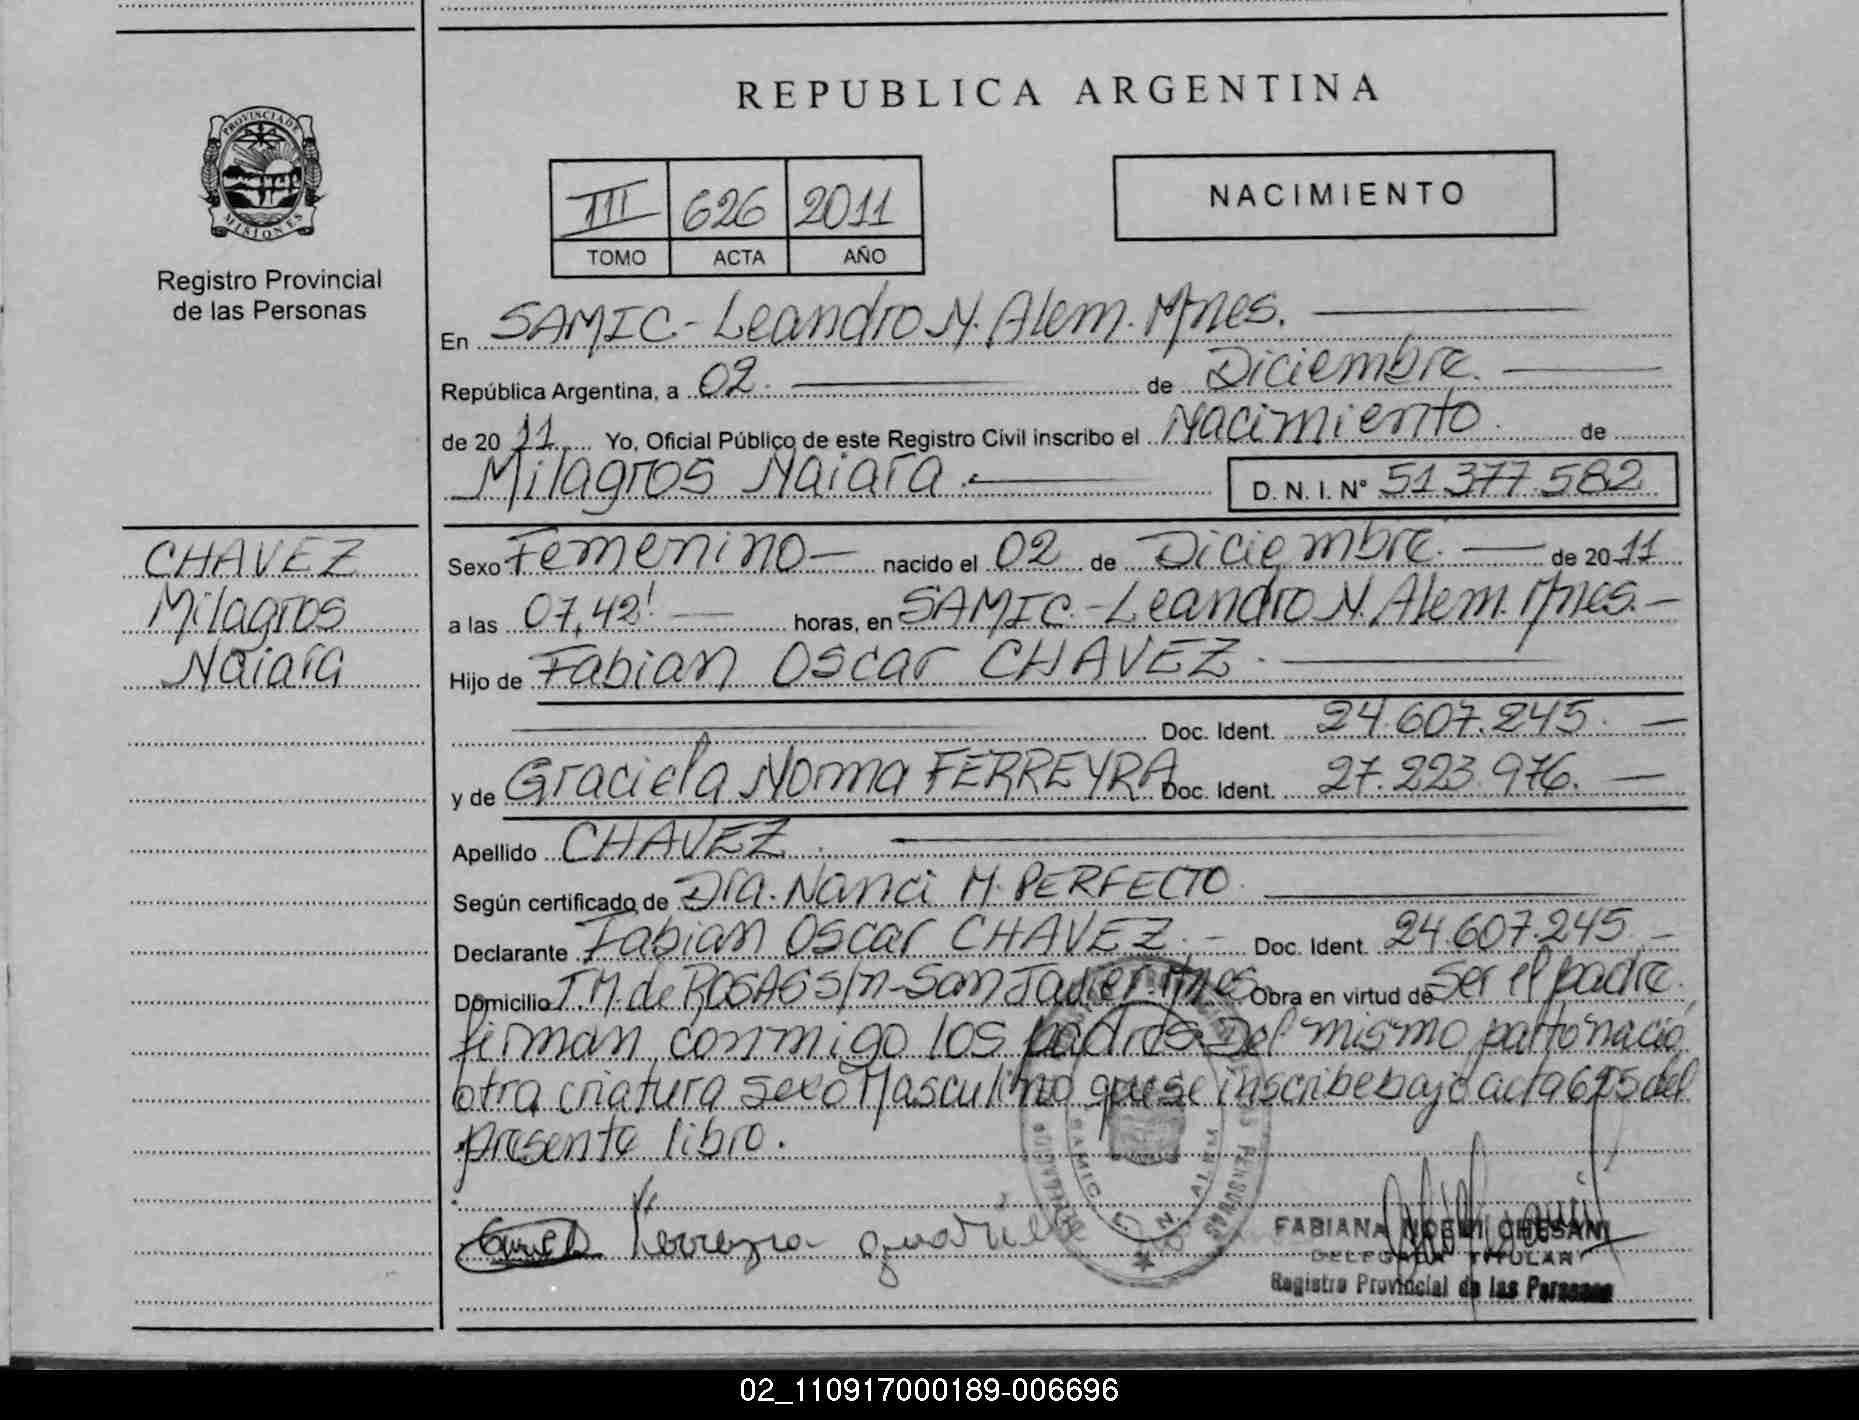 REPUBLICA ARGENTINA
PROVINCIA DE
MISIONES
Registro Provincial
de las Personas
III 626 2011
TOMO ACTA AÑO
NACIMIENTO
En SAMIC.- Leandro N. Alem. Mnes.
República Argentina, a 02. de Diciembre.
de 20 11 Yo, Oficial Público de este Registro Civil inscribo el Nacimiento. de
Milagros Naiara.
D. N. I. Nº 51.377.582
CHAVEZ
Milagros
Naiara
Sexo Femenino nacido el 02 de Diciembre. de 20 11
a las 07,42! horas, en SAMIC.- Leandro N. Alem. Mnes.
Hijo de Fabian Oscar CHAVEZ.
Doc. Ident. 24.607.245.
y de Graciela Norma FERREYRA Doc. Ident. 27.223.976.
Apellido CHAVEZ.
Según certificado de Dra. Nanci M. PERFECTO.
Declarante Fabian Oscar CHAVEZ.- Doc. Ident. 24.607.245
Domicilio T.M. de ROSAS S/n-San Javier. Mnes. Obra en virtud de Ser el padre.
firman conmigo los padres. Del mismo parto nació
otra criatura sexo Masculino que se inscribe bajo acta 625 del
presente libro.
Ferreyra
FABIANA NOEMI CHESANI
DELEGADA TITULAR
Registro Provincial de las Personas
02_110917000189-006696